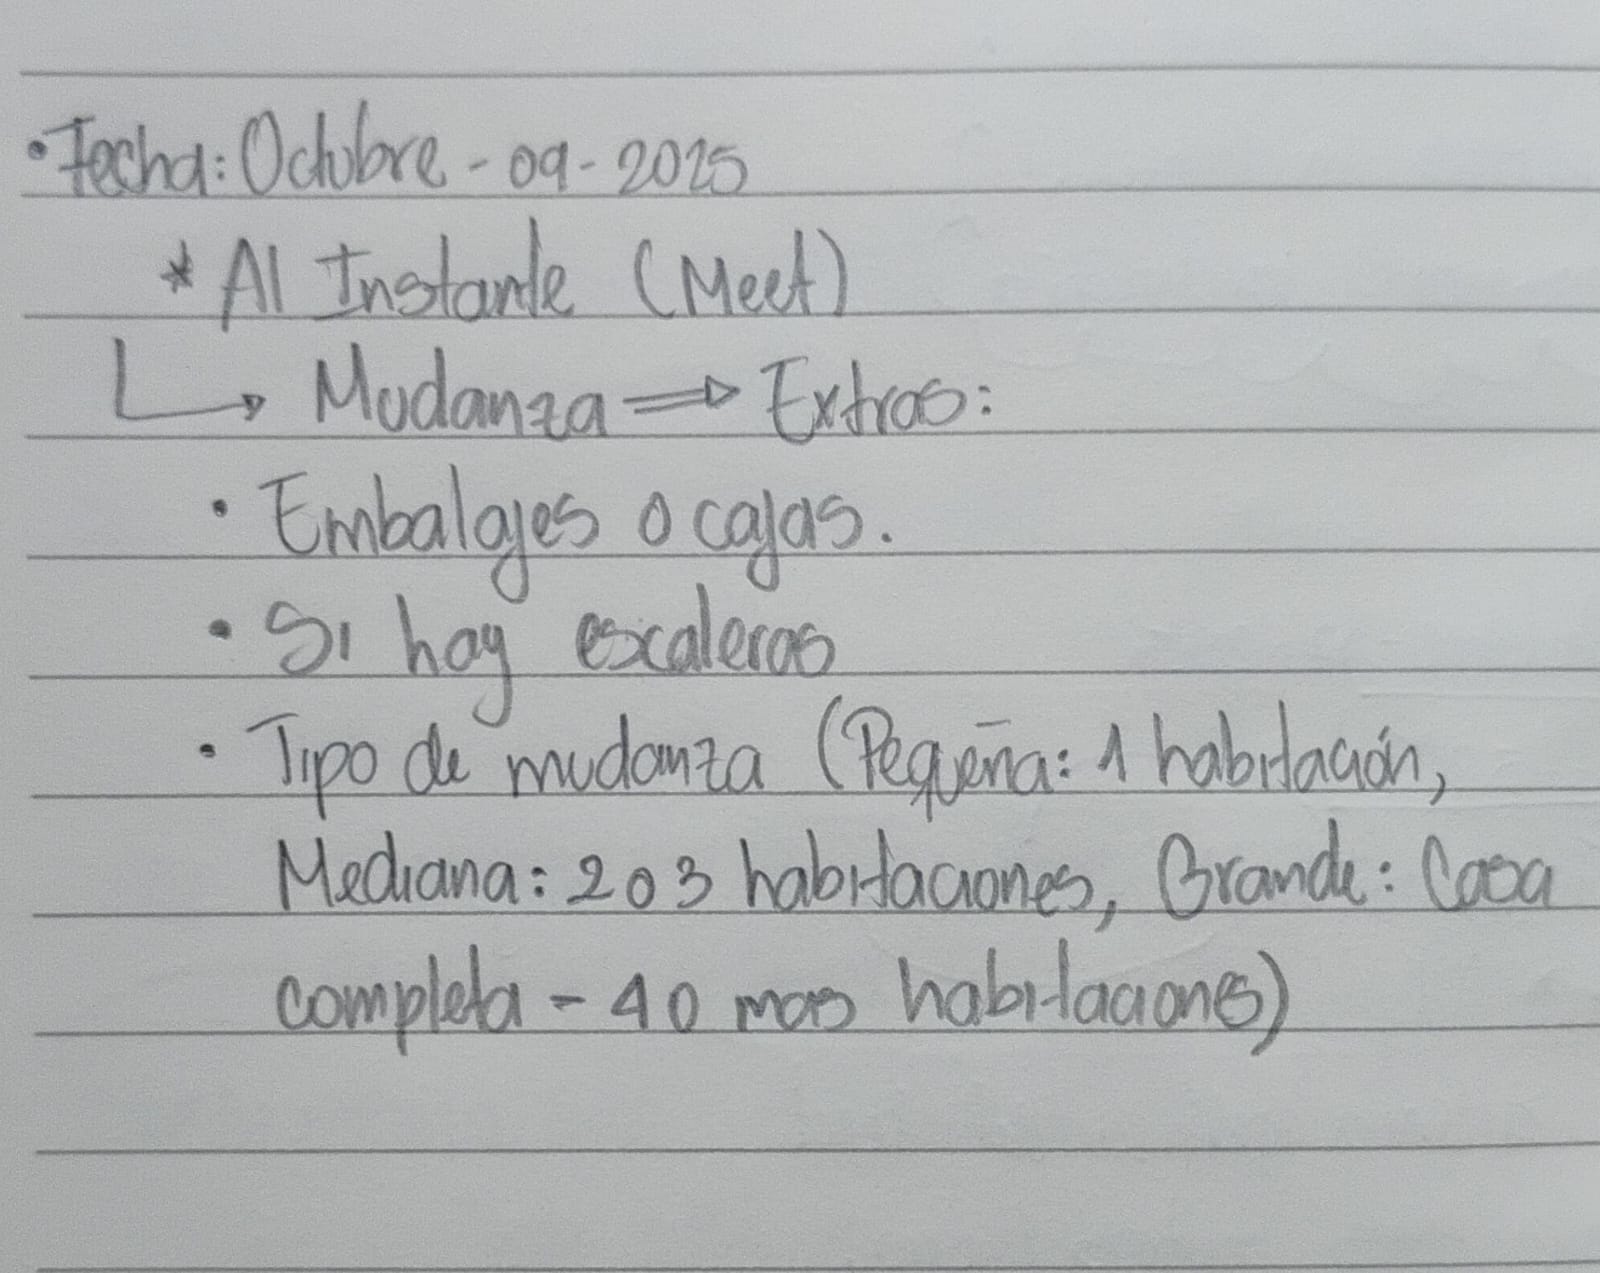 • Fecha: Octubre - 09 - 2025
* Al Instante (Meet)
↳ Mudanza ⇒ Extras:
• Embalajes o cajas.
• Si hay escaleras
• Tipo de mudanza (Pequeña: 1 habitación,
Mediana: 2 o 3 habitaciones, Grande: Casa
completa - 4 o mas habitaciones)